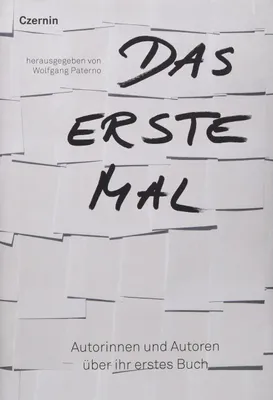 Czernin
herausgegeben von
Wolfgang Paterno
DAS
ERSTE
MAL
Autorinnen und Autoren
über ihr erstes Buch